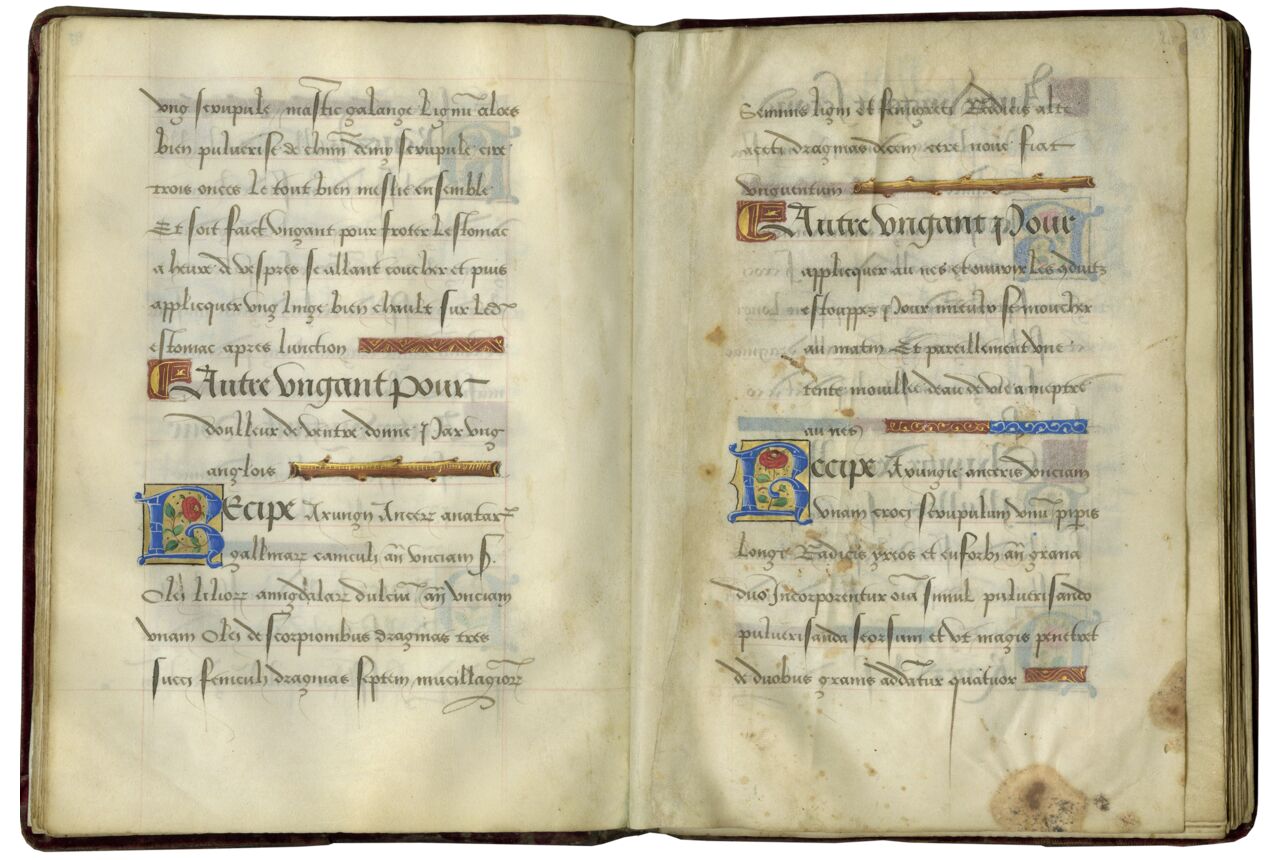 vng scrupule mastic galange lignũ aloes
bien pulverise de chũn demy scrupule cire
trois onces le tout bien meslie ensemble
Et soit faict vngant pour froter lestomac
a heure de vespres se allant coucher et puis
applicquer vng linge bien chault sur led
estomac apres lunction
Autre vngant pour
doulleur de ventre donne par vng
anglois
REcipe Axungie Ancerr anatarr
gallinarr caniculi añ vnciam s.
Olei liliorr amigdalarr dulciũ añ vnciam
vnam Olei de scorpionibus dragmas tres
succi feniculi dragmas septem mucillagiorr
Seminis ligni et fenugreci Radicis alte
acceti dragmas decem cere noue fiat
vnguentum
Autre vngant Pour
applicquer au nes et ouvrir les 9duitz
estouppez Pour mieulx se moucher
au matin Et pareillement vne
tente mouillee deau de vie a meptre
au nes
Recipe Axungie anceris vnciam
vnam croci scrupulum vnũ pip̃is
longe Radicis yreos et euforbi añ grana
duo Incorporentur oĩa simul pulverisando
pulverisanda seorsum et vt magis penetret
de duobus granis addatur quatuor